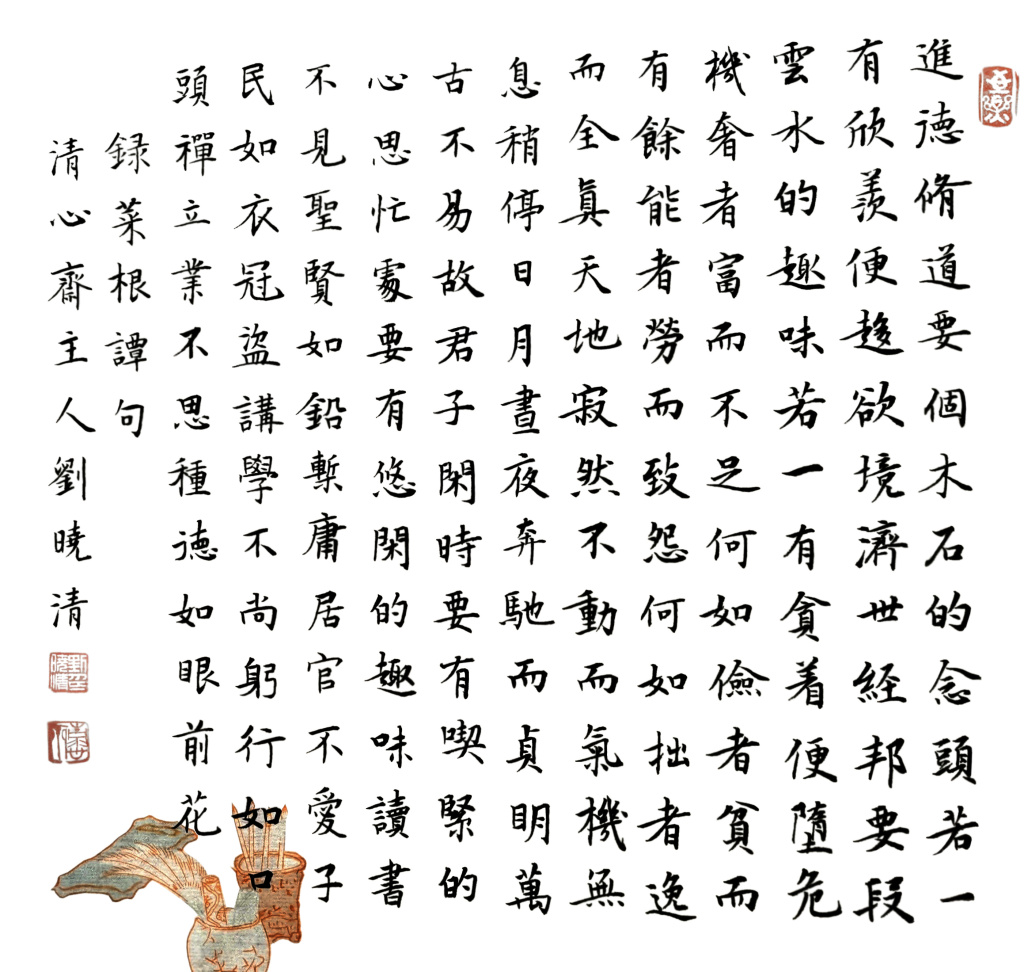 進德脩道要個木石的念頭若一
有欣羨便趍欲境濟世經邦要段
雲水的趣味若一有貪着便墮危
機奢者富而不足何如儉者貧而
有餘能者勞而致怨何如拙者逸
而全眞天地寂然不動而氣機無
息稍停日月晝夜奔馳而貞明萬
古不易故君子閑時要有喫緊的
心思忙處要有悠閑的趣味讀書
不見聖賢如鉛槧庸居官不愛子
民如衣冠盜講學不尚躬行如口
頭禪立業不思種德如眼前花
録菜根譚句
清心齋主人劉曉清